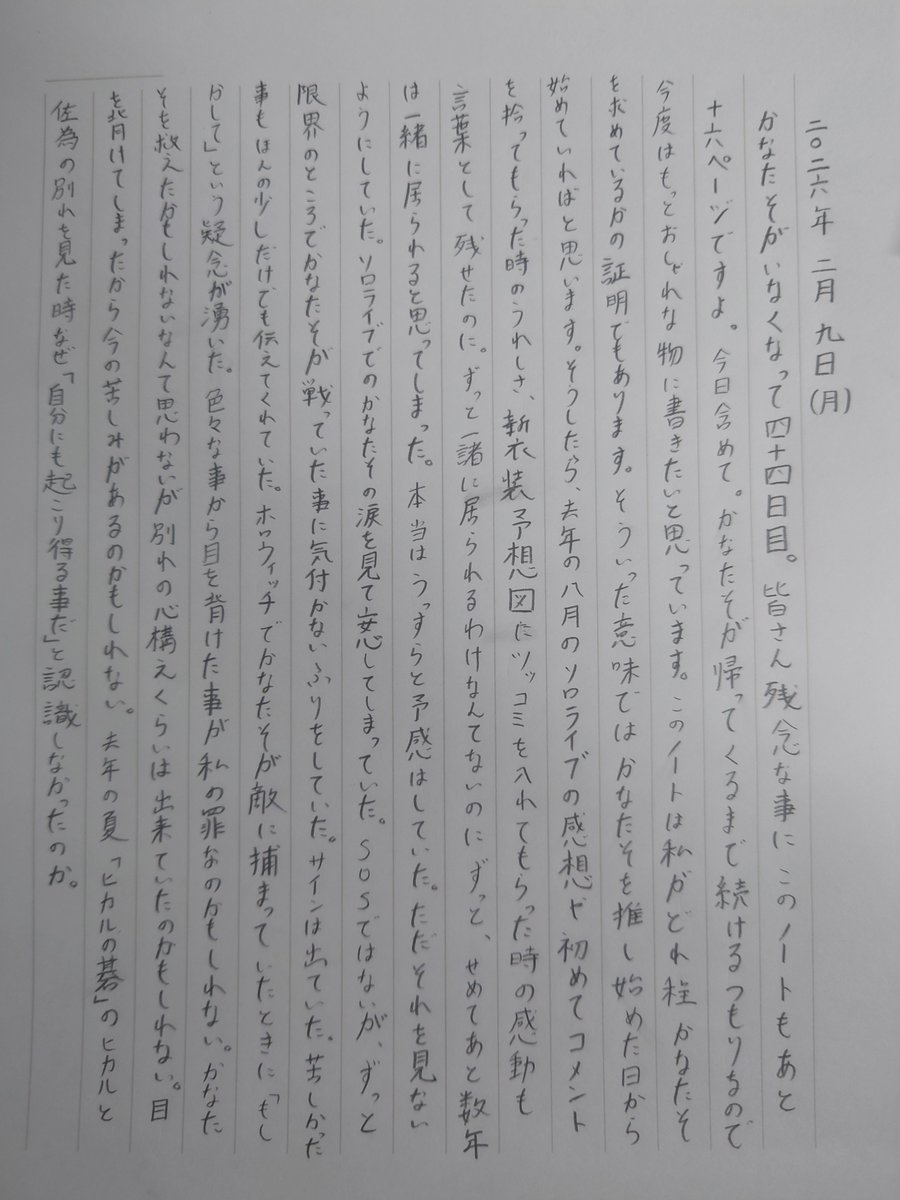 二〇二六年 二月 九日(月)
かなたそがいなくなって四十四日目。皆さん残念な事にこのノートもあと
十六ページですよ。今日含めて。かなたそが帰ってくるまで続けるつもりなので
今度はもっとおしゃれな物に書きたいと思っています。このノートは私がどれ程かなたそ
を求めているかの証明でもあります。そういった意味ではかなたそを推し始めた日から
始めていればと思います。そうしたら、去年の八月のソロライブの感想や初めてコメント
を拾ってもらった時のうれしさ、新衣装予想図にツッコミを入れてもらった時の感動も
言葉として残せたのに。ずっと一諸に居られるわけなんてないのにずっと、せめてあと数年
は一緒に居られると思ってしまった。本当はうっすらと予感はしていた。ただそれを見ない
ようにしていた。ソロライブでのかなたその涙を見て妄してしまっていた。SOSではないが、ずっと
限界のところでかなたそが戦っていた事に気付かないふりをしていた。サインは出ていた。苦しかった
事もほんの少しだけでも伝えてくれていた。ホロウィッチでかなたそが敵に捕まっていたときに「もし
かして」という疑念が湧いた。色々な事から目を背けた事が私の罪なのかもしれない。かなた
そを救えたかもしれないなんて思わないが別れの心構えくらいは出来ていたのかもしれない。目
を背けてしまったから今の苦しみがあるのかもしれない。去年の夏「ヒカルの碁」のヒカルと
佐為の別れを見た時なぜ「自分にも起こり得る事だ」と認識しなかったのか。